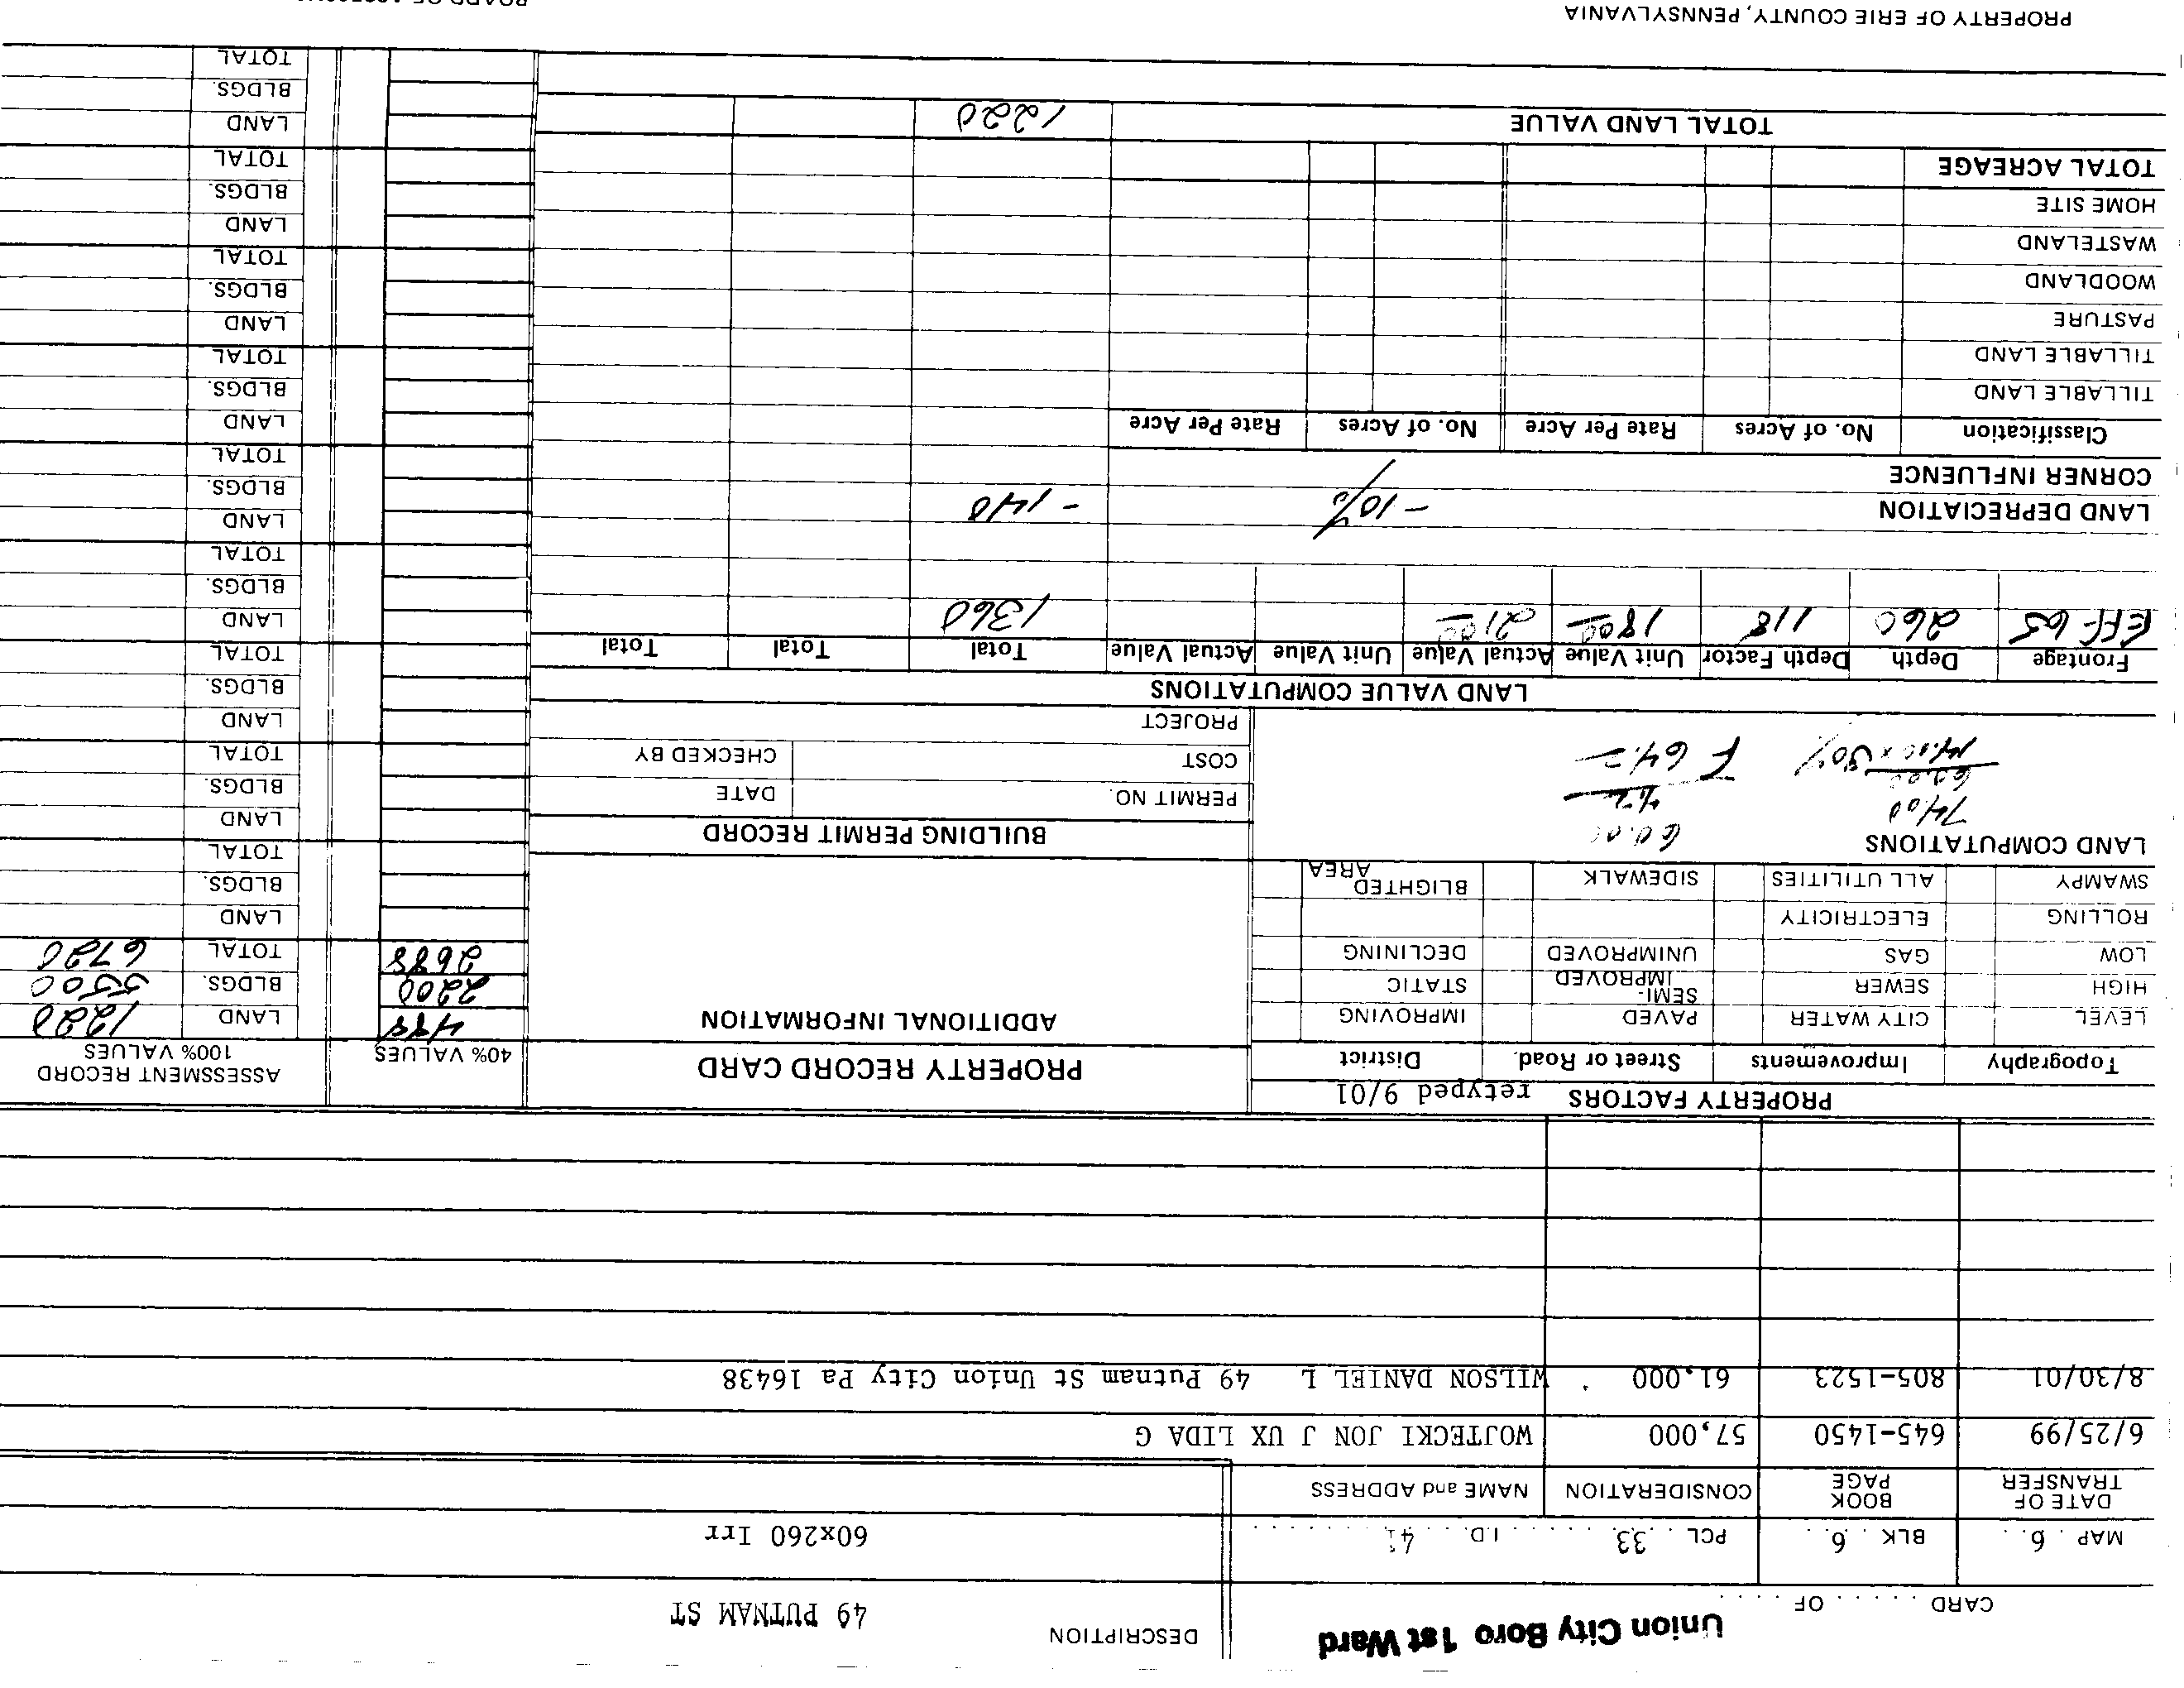 Union City Boro 1st Ward
DESCRIPTION 49 PUTNAM ST
CARD . . . . . OF . . . . .
MAP . 6 . . BLK . 6 . . PCL . . 33 . . . . . . I.D. . . . 41 . . . . . . . . .
60x260 Irr
DATE OF TRANSFER BOOK PAGE CONSIDERATION NAME and ADDRESS
6/25/99 645-1450 57,000 WOJTECKI JON J UX LIDA G
8/30/01 805-1523 61,000 WILSON DANIEL L 49 Putnam St Union City Pa 16438
PROPERTY FACTORS retyped 9/01
Topography Improvements Street or Road. District
LEVEL CITY WATER PAVED IMPROVING
HIGH SEWER SEMI-IMPROVED STATIC
LOW GAS UNIMPROVED DECLINING
ROLLING ELECTRICITY
SWAMPY ALL UTILITIES SIDEWALK BLIGHTED AREA
LAND COMPUTATIONS
74.00 60.00
60.00
14.00 x 30% F 64.2
PROPERTY RECORD CARD
ADDITIONAL INFORMATION
BUILDING PERMIT RECORD
PERMIT NO. DATE
COST CHECKED BY
PROJECT
40% VALUES ASSESSMENT RECORD 100% VALUES
488 LAND 1220
2200 BLDGS. 5500
2688 TOTAL 6720
LAND
BLDGS.
TOTAL
LAND
BLDGS.
TOTAL
LAND
BLDGS.
TOTAL
LAND
BLDGS.
TOTAL
LAND
BLDGS.
TOTAL
LAND
BLDGS.
TOTAL
LAND
BLDGS.
TOTAL
LAND
BLDGS.
TOTAL
LAND
BLDGS.
TOTAL
LAND VALUE COMPUTATIONS
Frontage Depth Depth Factor Unit Value Actual Value Unit Value Actual Value Total Total Total
EFF 65 260 118 18.00 21.00 1360
LAND DEPRECIATION -10% - 140
CORNER INFLUENCE
Classification No. of Acres Rate Per Acre No. of Acres Rate Per Acre
TILLABLE LAND
TILLABLE LAND
PASTURE
WOODLAND
WASTELAND
HOME SITE
TOTAL ACREAGE
TOTAL LAND VALUE 1220
PROPERTY OF ERIE COUNTY, PENNSYLVANIA